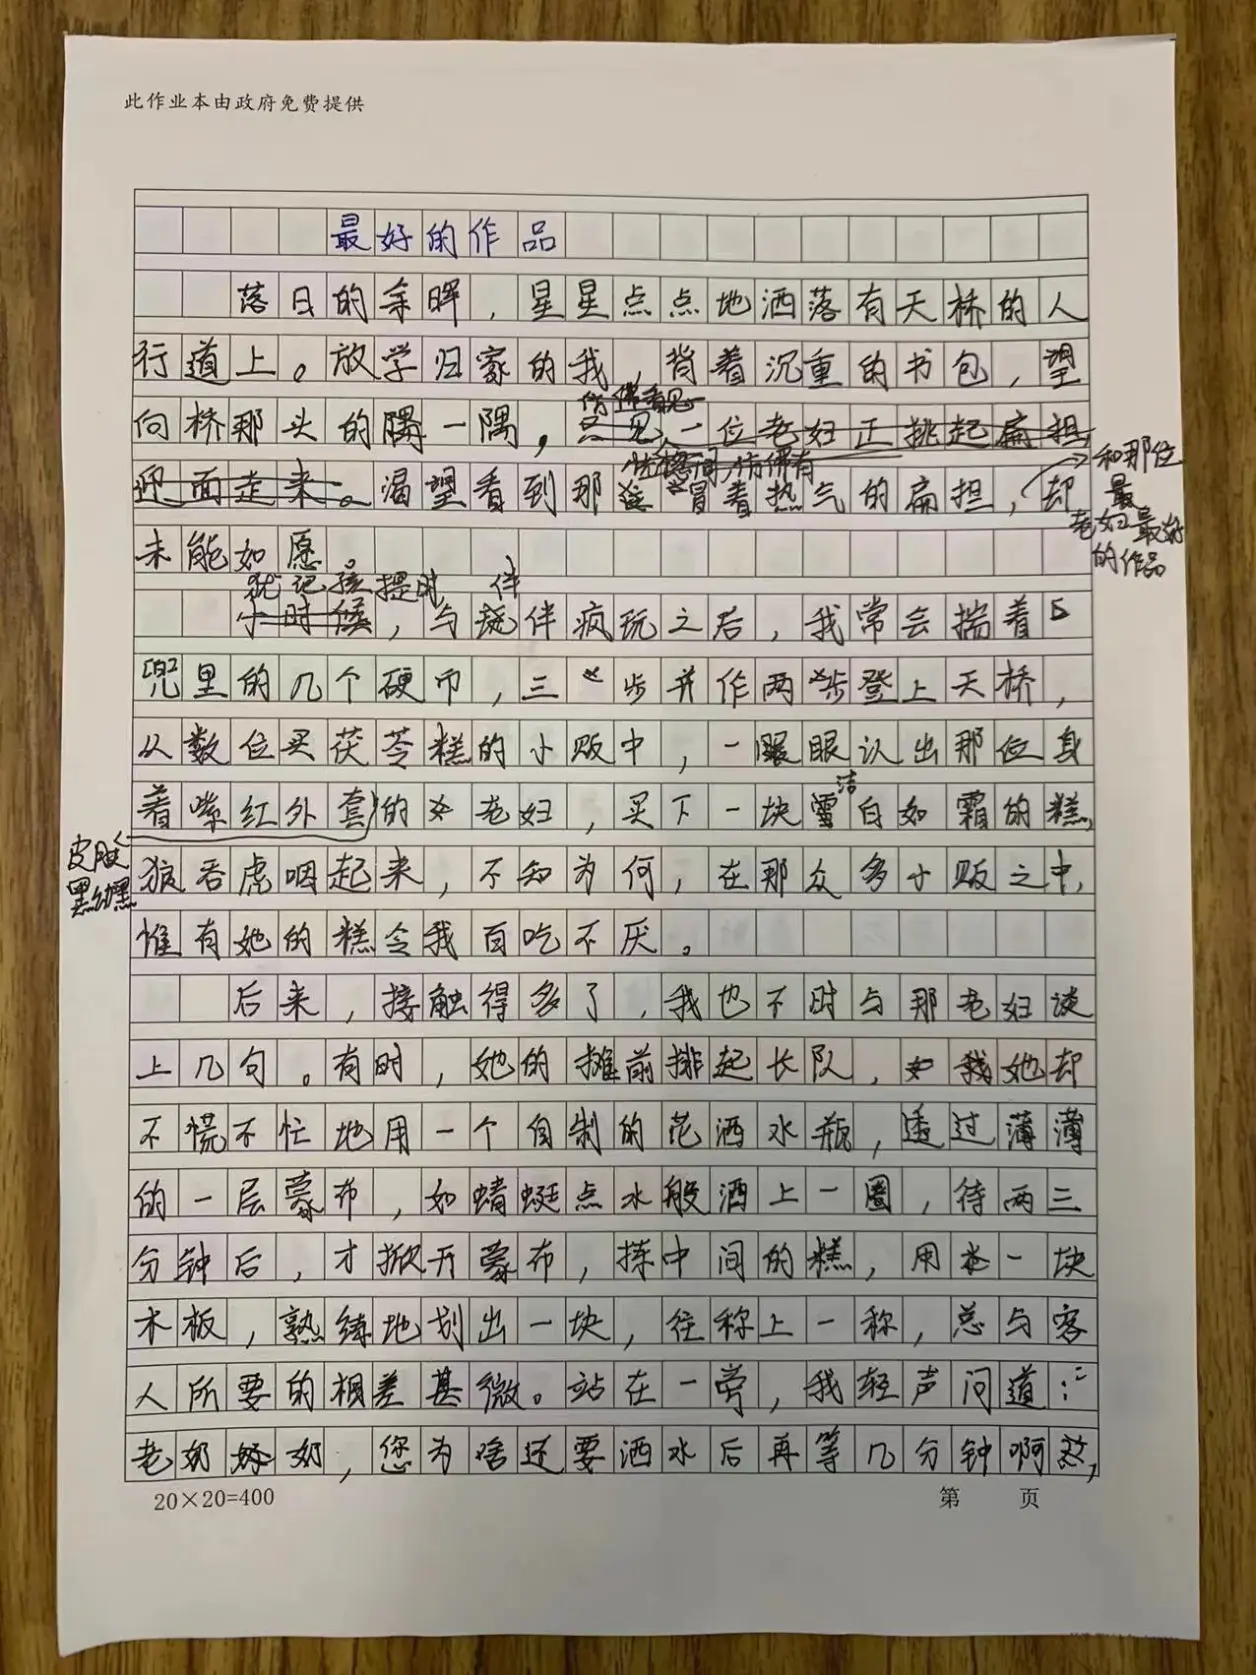 此作业本由政府免费提供
最好的作品
落日的余晖，星星点点地洒落有天桥的人
行道上。放学归家的我，背着沉重的书包，望
仿佛看见
向桥那头的一隅，只见，一位老妇正挑起扁担，
恍惚间，仿佛有
迎面走来。渴望看到那冒着热气的扁担，却
和那位
老妇最好
的作品
未能如愿。
犹记孩提时 伴
小时候，与玩伴疯玩之后，我常会揣着
兜里的几个硬币，三步并作两步登上天桥，
从数位买茯苓糕的小贩中，一眼认出那位身
洁
着紫红外套的老妇，买下一块雪白如霜的糕，
皮肤
黑黝黝
狼吞虎咽起来，不知为何，在那众多小贩之中，
惟有她的糕令我百吃不厌。
后来，接触得多了，我也不时与那老妇谈
上几句。有时，她的摊前排起长队，她却
不慌不忙地用一个自制的花洒水瓶，透过薄薄
的一层蒙布，如蜻蜓点水般洒上一圈，待两三
分钟后，才掀开蒙布，拣中间的糕，用一块
木板，熟练地划出一块，往称上一称，总与客
人所要的相差甚微。站在一旁，我轻声问道：“
老奶奶，您为啥还要洒水后再等几分钟啊，
20×20=400
第 页